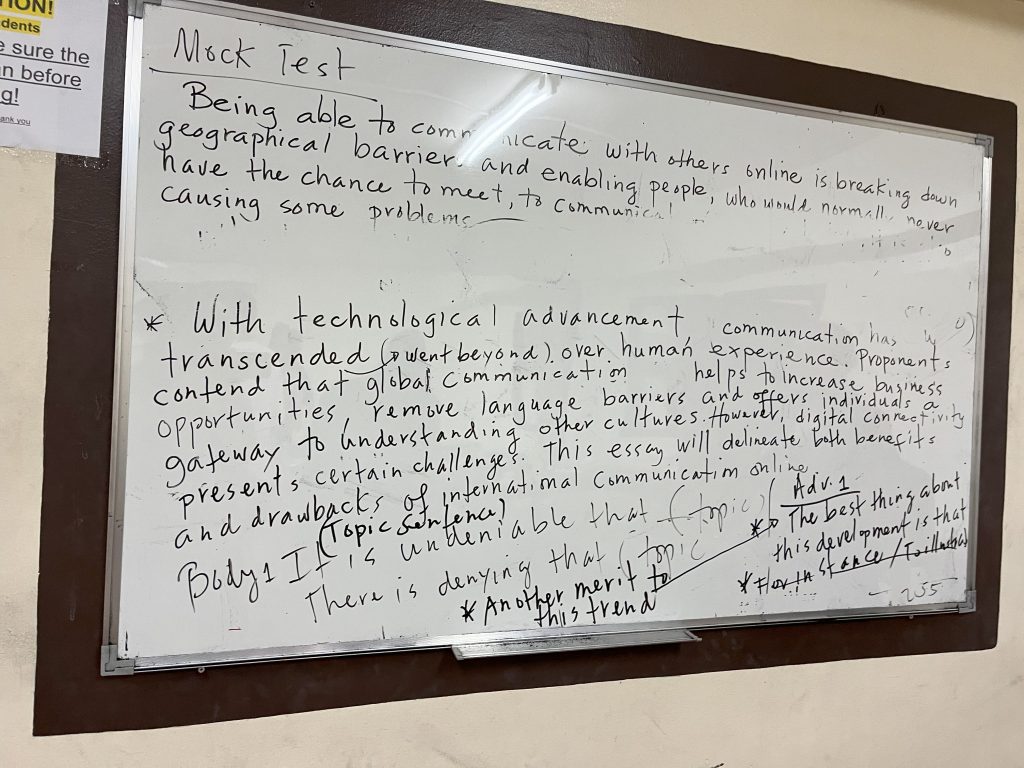 ION!
dents
sure the
n before
g!
ank you
Mock Test
Being able to communicate with others online is breaking down
geographical barriers and enabling people, who would normally never
have the chance to meet, to communicat
causing some problems
* With technological advancement, communication has
transcended (→ went beyond) over human experience. Proponents
contend that global communication helps to increase business
opportunities, remove language barriers and offers individuals a
gateway to understanding other cultures. However, digital connectivity
presents certain challenges. This essay will delineate both benefits
and drawbacks of international communication online
(Topic sentence)
Body 1 It is undeniable that (topic)
There is denying that (topic
* Another merit to
this trend
Adv. 1
The best thing about
this development is that
* For instance / To illustrate
255